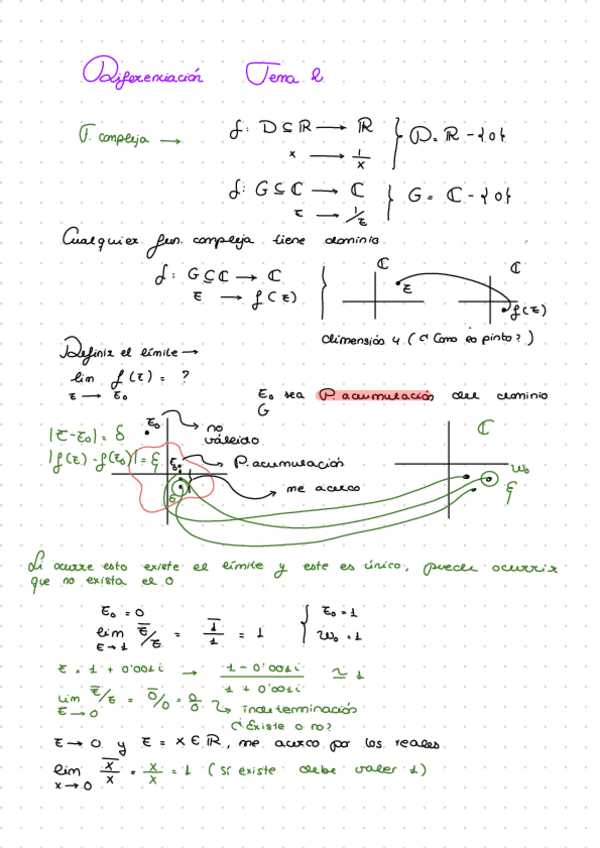 Diferenciación Tema 2
F. compleja → f: D ⊆ ℝ → ℝ } D = ℝ - {0}
x → 1/x
f: G ⊆ ℂ → ℂ } G = ℂ - {0}
z → 1/z
Cualquier fun. compleja tiene dominio
f: G ⊆ ℂ → ℂ
z → f(z)
ℂ
z
ℂ
f(z)
dimensión 4 (¿Como lo pinto?)
Definir el límite →
lim f(z) = ?
z → z₀
z₀ sea P acumulación del dominio
G
|z-z₀| = δ
|f(z) - f(z₀)| = ξ
z₀
no
válido
P. acumulación
me acerco
z₀
δ
ℂ
w₀
ξ
Si ocurre esto existe el límite y este es único, puede ocurrir
que no exista el 0
z₀ = 0
lim z̅/z = 1̅/1 = 1
z → 1
{ z₀ = 1
w₀ = 1
z = 1 + 0'001i → (1 - 0'001i)/(1 + 0'001i) ≃ 1
lim z̅/z = 0̅/0 = 0/0 ↳ indeterminación
z → 0
¿Existe o no?
z → 0 y z = x ∈ ℝ, me acerco por los reales
lim x̅/x = x/x = 1 (Si existe debe valer 1)
x → 0